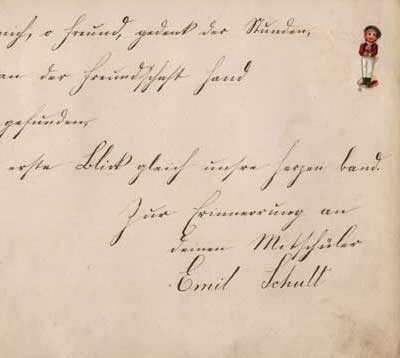 mich, o Freund, gedenk der Stunden,
an der Freundschaft Hand
gefunden,
erste Blick gleich unsre Herzen band.
Zur Erinnerung an
deinen Mitschüler
Emil Schult